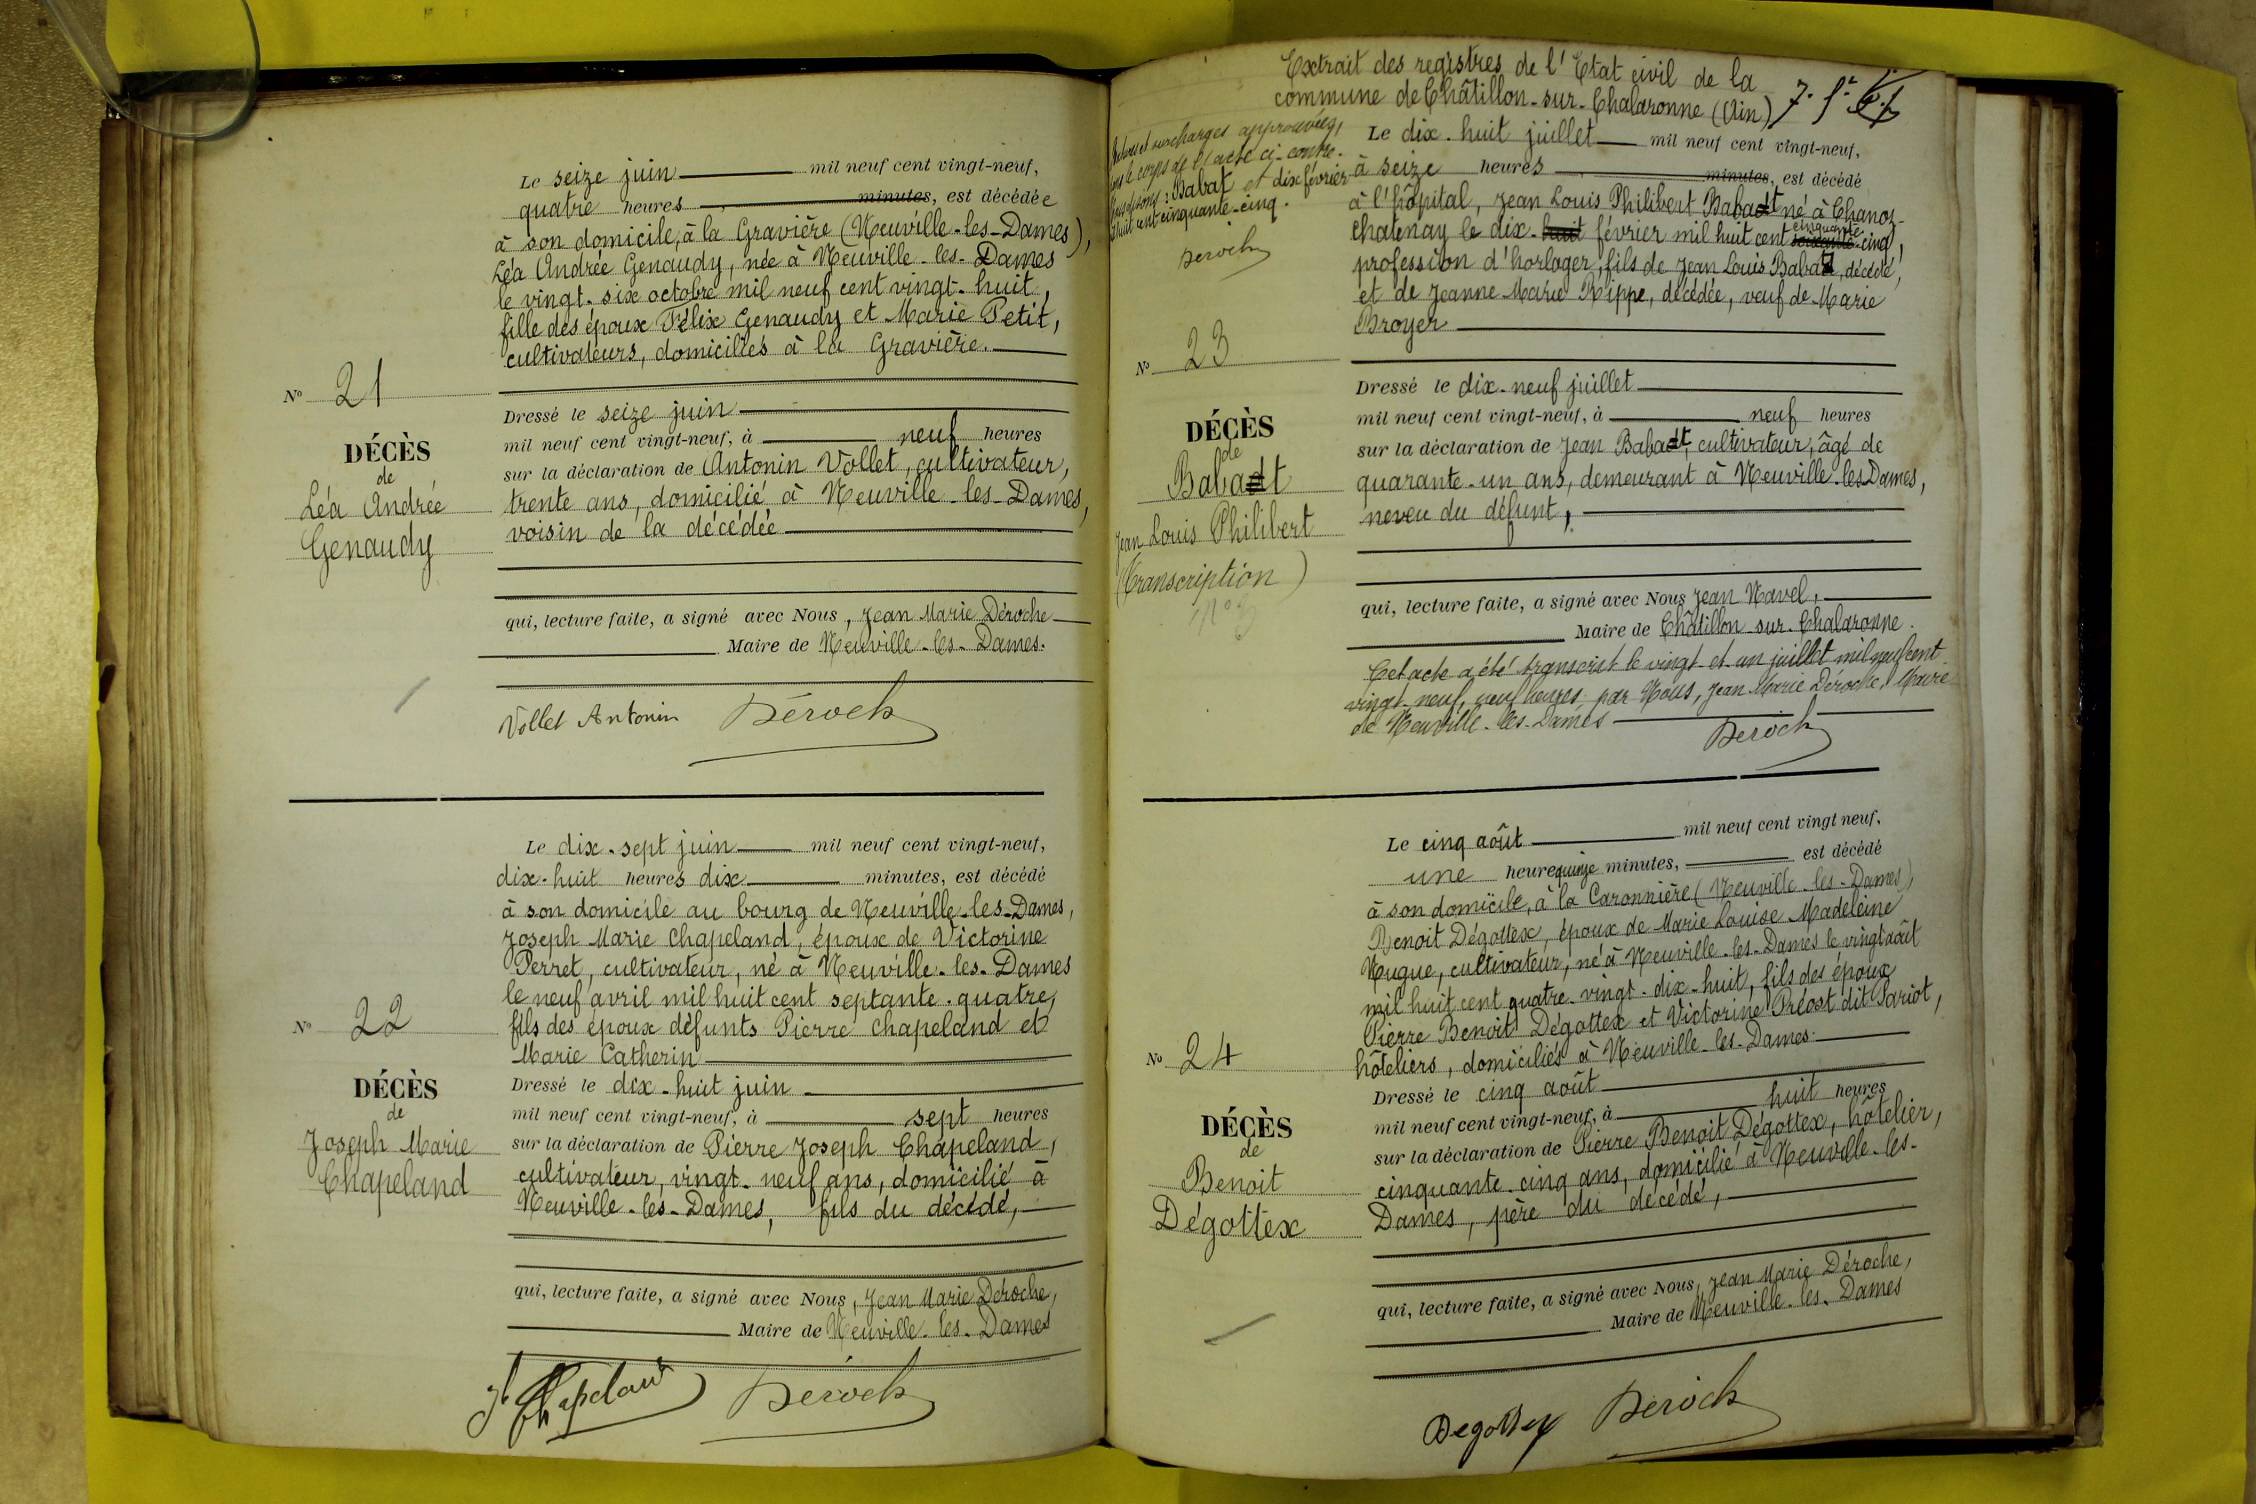 Le seize juin mil neuf cent vingt-neuf,
quatre heures minutes, est décédée
à son domicile, à la Gravière (Neuville-les-Dames),
Léa Andrée Genaudy, née à Neuville-les-Dames
le vingt-six octobre mil neuf cent vingt-huit,
fille des époux Félix Genaudy et Marie Petit,
cultivateurs, domiciliés à la Gravière.
N° 21
DÉCÈS
de
Léa Andrée
Genaudy
Dressé le seize juin
mil neuf cent vingt-neuf, à neuf heures
sur la déclaration de Antonin Vollet, cultivateur,
trente ans, domicilié à Neuville-les-Dames,
voisin de la décédée
qui, lecture faite, a signé avec Nous, Jean Marie Déroche
Maire de Neuville-les-Dames.
Vollet Antonin Déroch
Le dix-sept juin mil neuf cent vingt-neuf,
dix-huit heures dix minutes, est décédé
à son domicile au bourg de Neuville-les-Dames,
Joseph Marie Chapeland, époux de Victorine
Perret, cultivateur, né à Neuville-les-Dames
le neuf avril mil huit cent septante-quatre,
fils des époux défunts Pierre Chapeland et
Marie Catherin
N° 22
DÉCÈS
de
Joseph Marie
Chapeland
Dressé le dix-huit juin
mil neuf cent vingt-neuf, à sept heures
sur la déclaration de Pierre Joseph Chapeland,
cultivateur, vingt-neuf ans, domicilié à
Neuville-les-Dames, fils du décédé,
qui, lecture faite, a signé avec Nous, Jean Marie Déroche,
Maire de Neuville-les-Dames
Chapeland Déroch
Extrait des registres de l'Etat civil de la
commune de Châtillon-sur-Chalaronne (Ain)
surcharges approuvées,
le corps de l'acte ci-contre.
Babat et dix février
huit cent cinquante-cinq.
Déroch
Le dix-huit juillet mil neuf cent vingt-neuf,
à seize heures minutes, est décédé
à l'hôpital, Jean Louis Philibert Babat né à Chanoz-
chatenay le dix-huit février mil huit cent soixante cinquante-cinq,
profession d'horloger, fils de Jean Louis Babat, décédé,
et de Jeanne Marie Rippe, décédée, veuf de Marie
Broyer
N° 23
DÉCÈS
de
Babat
Jean Louis Philibert
(Transcription)
N° 3
Dressé le dix-neuf juillet
mil neuf cent vingt-neuf, à neuf heures
sur la déclaration de Jean Babat, cultivateur, âgé de
quarante-un ans, demeurant à Neuville-les-Dames,
neveu du défunt,
qui, lecture faite, a signé avec Nous Jean Navel,
Maire de Châtillon-sur-Chalaronne.
Cet acte a été transcrit le vingt-et-un juillet mil neuf cent
vingt-neuf, neuf heures, par Nous, Jean Marie Déroche, Maire
de Neuville-les-Dames
Déroch
Le cinq août mil neuf cent vingt neuf,
une heure quinze minutes, est décédé
à son domicile, à la Caronnière (Neuville-les-Dames),
Benoit Dégottex, époux de Marie Louise Madeleine
Nugue, cultivateur, né à Neuville-les-Dames le vingt août
mil huit cent quatre-vingt-dix-huit, fils des époux
Pierre Benoit Dégottex et Victorine Préost dit Pariot,
hôteliers, domiciliés à Neuville-les-Dames.
N° 24
DÉCÈS
de
Benoit
Dégottex
Dressé le cinq août
mil neuf cent vingt-neuf, à huit heures
sur la déclaration de Pierre Benoit Dégottex, hôtelier,
cinquante-cinq ans, domicilié à Neuville-les-
Dames, père du décédé,
qui, lecture faite, a signé avec Nous, Jean Marie Déroche,
Maire de Neuville-les-Dames
Degottex Déroch